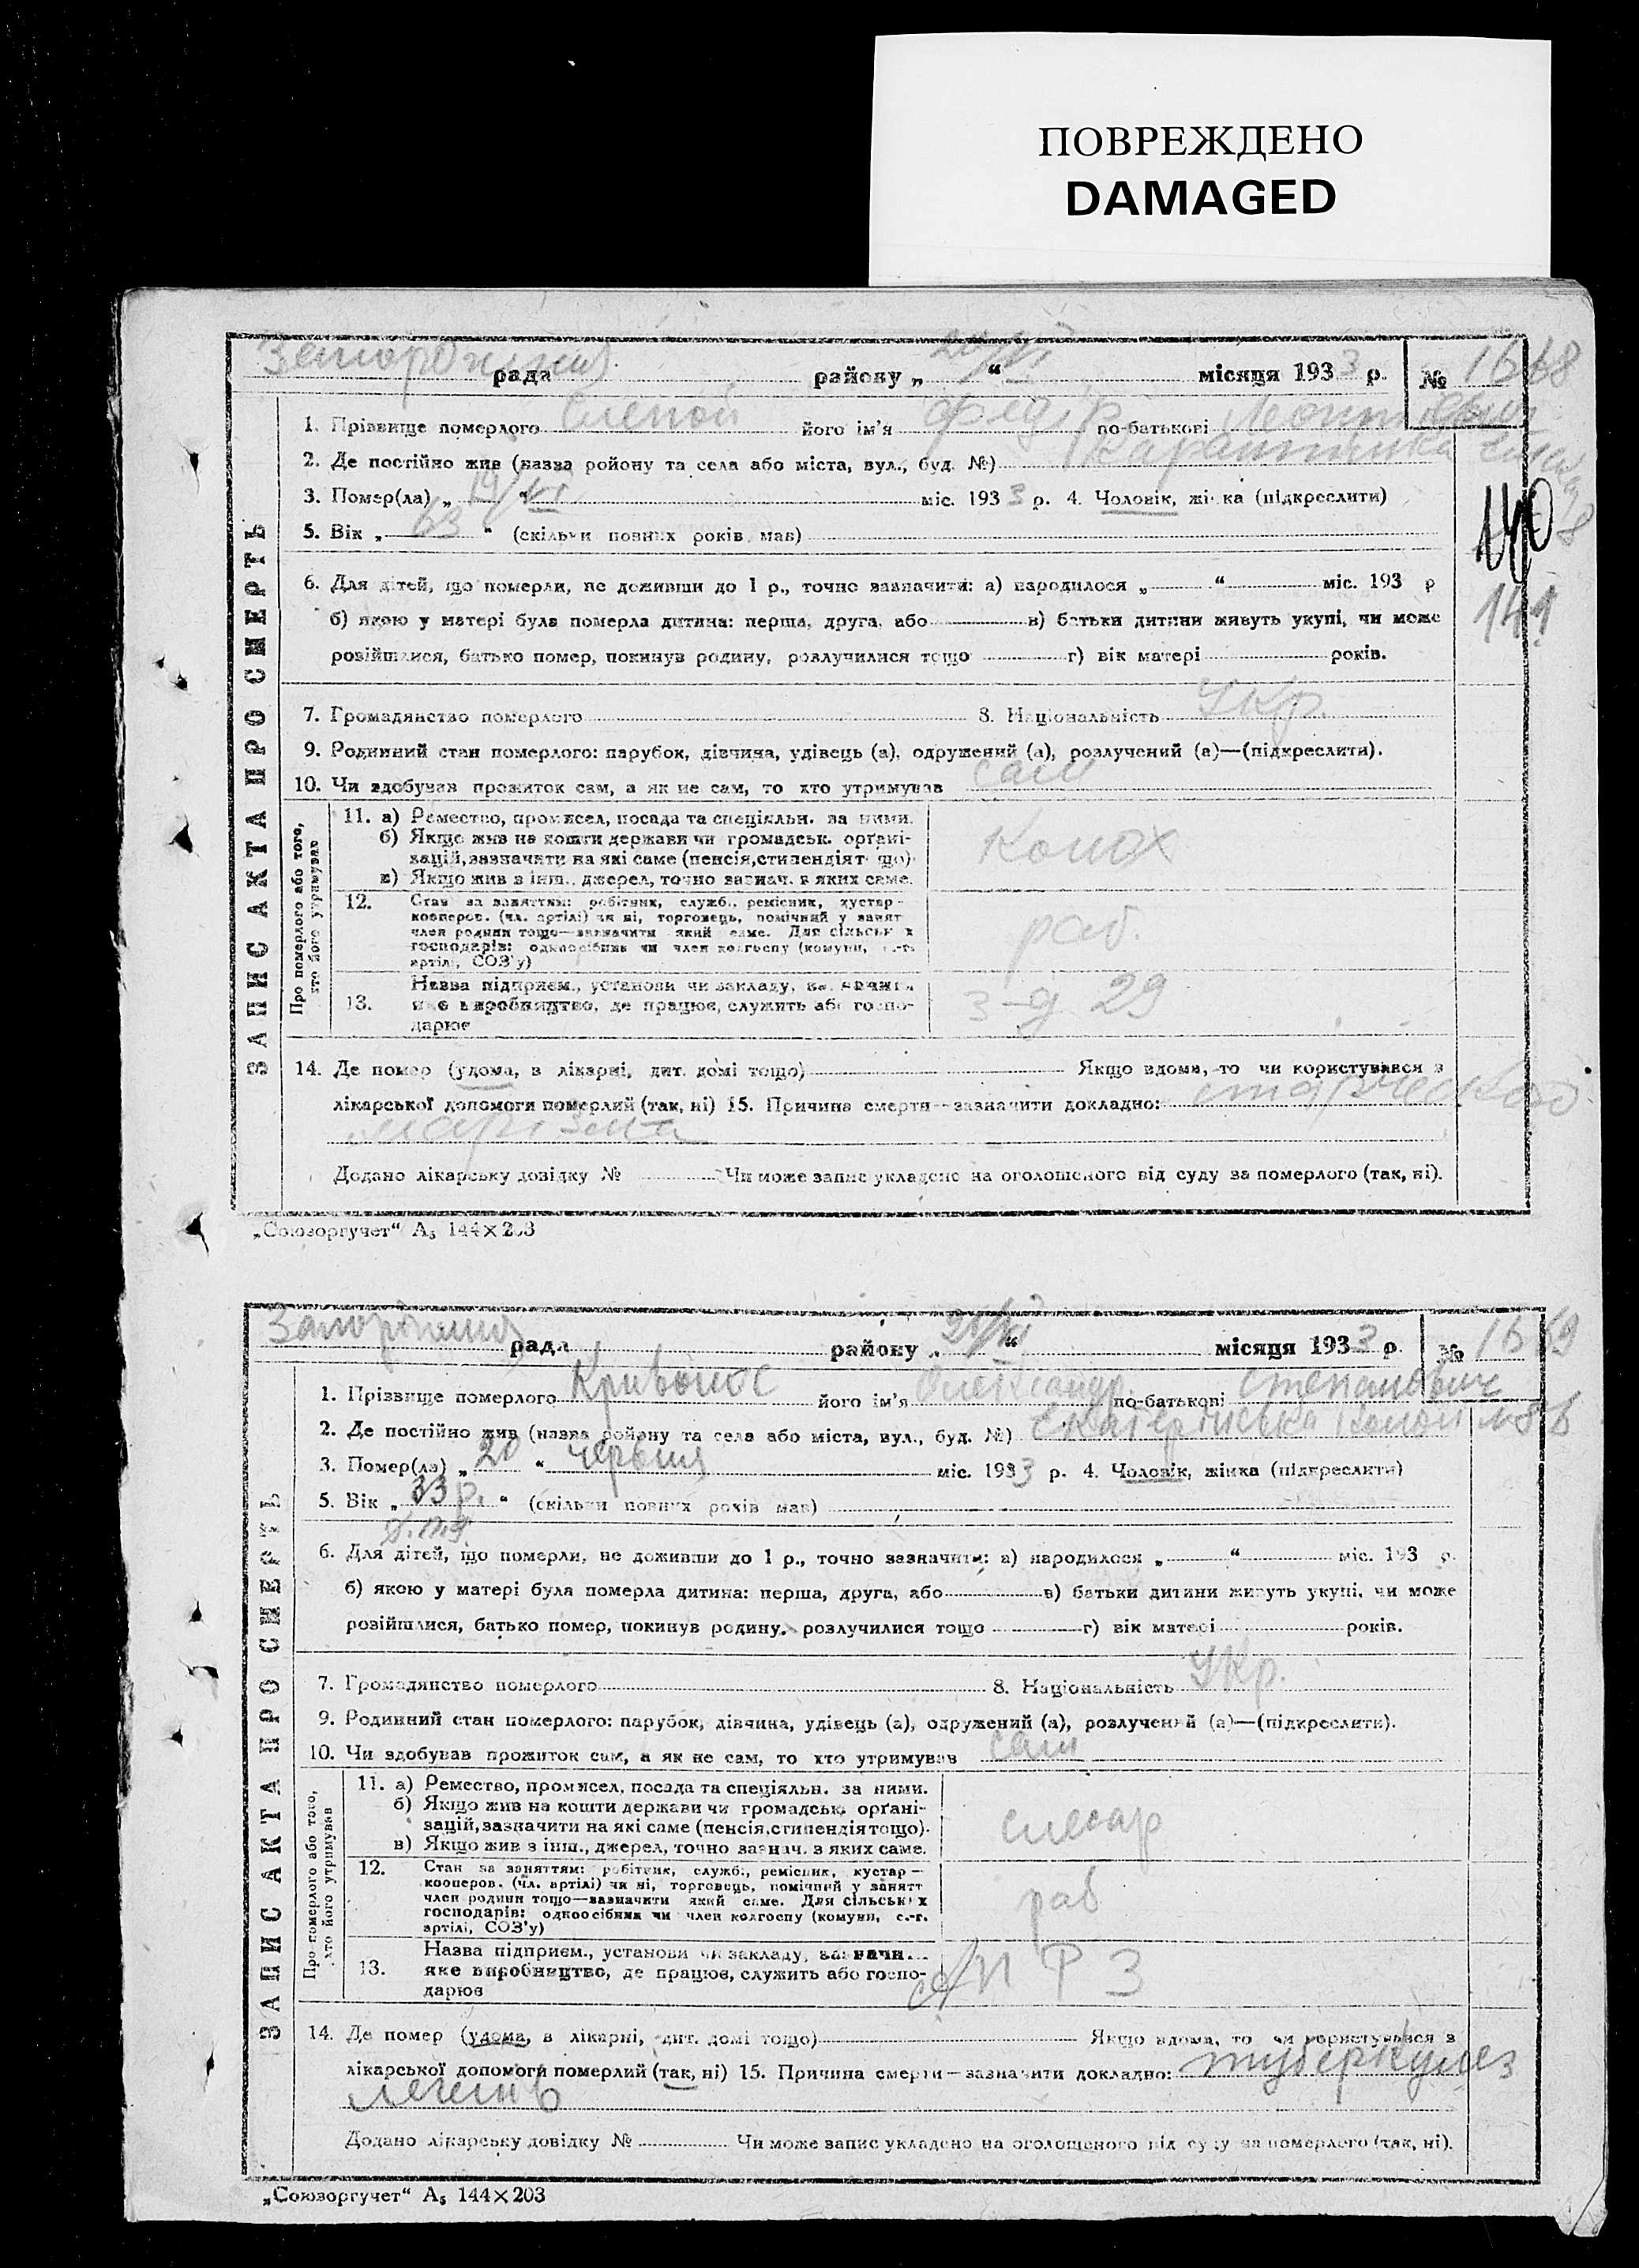 ПОВРЕЖДЕНО
DAMAGED
рада району „ 20/VI “ місяця 1933 р. № 1668
1. Прізвище померлого Слепой його ім'я по-батькові
2. Де постійно жив (назва ройону та села або міста, вул., буд. №)
3. Помер(ла) „ 19/VI “ міс. 1933 р. 4. Чоловік, жінка (підкреслити)
5. Вік „ 63 “ (скільки повних років мав)
140
141
6. Для дітей, що померли, не доживши до 1 р., точно зазначити: а) народилося „ “ міс. 193 р
б) якою у матері була померла дитина: перша, друга, або в) батьки дитини живуть укупі, чи може
розійшлися, батько помер, покинув родину, розлучилися тощо г) вік матері років.
7. Громадянство померлого 8. Національність Укр.
9. Родинний стан померлого: парубок, дівчина, удівець (а), одружений (а), розлучений (а)—(підкреслити).
10. Чи здобував прожиток сам, а як не сам, то хто утримував сам
ЗАПИС АКТА ПРО СМЕРТЬ
Про померлого або того, хто його утримував
11. а) Ремество, промисел, посада та спеціяльн. за ними.
б) Якщо жив на кошти держави чи громадськ. органі-
зацій, зазначити на які саме (пенсія, стипендія тощо)
в) Якщо жив з інш., джерел, точно зазнач. з яких саме.
Конюх
12. Стан за заняттям: робітник, служб., ремісник, кустар—
кооперов. (чл. артілі) чи ні, торговець, помічний у занят
член родини тощо—зазначити який саме. Для сільськ х
господарів: одноосібник чи член колгоспу (комуни, с.-г.
артілі, СОЗ'у)
раб.
13. Назва підприєм., установи чи закладу, зазначити
яке виробництво, де працює, служить або госпо-
дарює
з-д 29
14. Де помер (удома, в лікарні, дит. домі тощо) Якщо вдома, то чи користувався з
лікарської допомоги померлий (так, ні) 15. Причина смерти—зазначити докладно: старческого
маразма
Додано лікарську довідку № Чи може запис укладено на оголошеного від суду за померлого (так, ні).
„Союзоргучет“ А₅ 144×203
рада району „ 21/VI “ місяця 1933 р. № 1669
1. Прізвище померлого Кривонос його ім'я Олександр по-батькові Степанович
2. Де постійно жив (назва ройону та села або міста, вул., буд. №)
3. Помер(ла) „ 20 “ червня міс. 1933 р. 4. Чоловік, жінка (підкреслити)
5. Вік „ 33 р. “ (скільки повних років мав)
6. Для дітей, що померли, не доживши до 1 р., точно зазначити: а) народилося „ “ міс. 193 р.
б) якою у матері була померла дитина: перша, друга, або в) батьки дитини живуть укупі, чи може
розійшлися, батько помер, покинув родину, розлучилися тощо г) вік матері років.
7. Громадянство померлого 8. Національність Укр.
9. Родинний стан померлого: парубок, дівчина, удівець (а), одружений (а), розлучений (а)—(підкреслити).
10. Чи здобував прожиток сам, а як не сам, то хто утримував сам
ЗАПИС АКТА ПРО СМЕРТЬ
Про померлого або того, хто його утримував
11. а) Ремество, промисел, посада та спеціяльн. за ними.
б) Якщо жив на кошти держави чи громадськ. органі-
зацій, зазначити на які саме (пенсія, стипендія тощо).
в) Якщо жив з інш., джерел, точно зазнач. з яких саме.
слесар
12. Стан за заняттям: робітник, служб., ремісник, кустар—
кооперов. (чл. артілі) чи ні, торговець, помічний у занятт
член родини тощо—зазначити який саме. Для сільськ х
господарів: одноосібник чи член колгоспу (комуни, с.-г.
артілі, СОЗ'у)
раб
13. Назва підприєм., установи чи закладу, зазначи
яке виробництво, де працює, служить або госпо-
дарює
П Р З
14. Де помер (удома, в лікарні, дит. домі тощо) Якщо вдома, то чи користувався з
лікарської допомоги померлий (так, ні) 15. Причина смерти—зазначити докладно: туберкульоз
легенів
Додано лікарську довідку № Чи може запис укладено на оголошеного від суду за померлого (так, ні).
„Союзоргучет“ А₅ 144×203